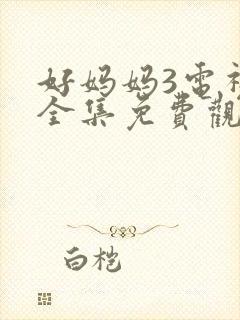 好妈妈3電视
全集免費觀
白桤